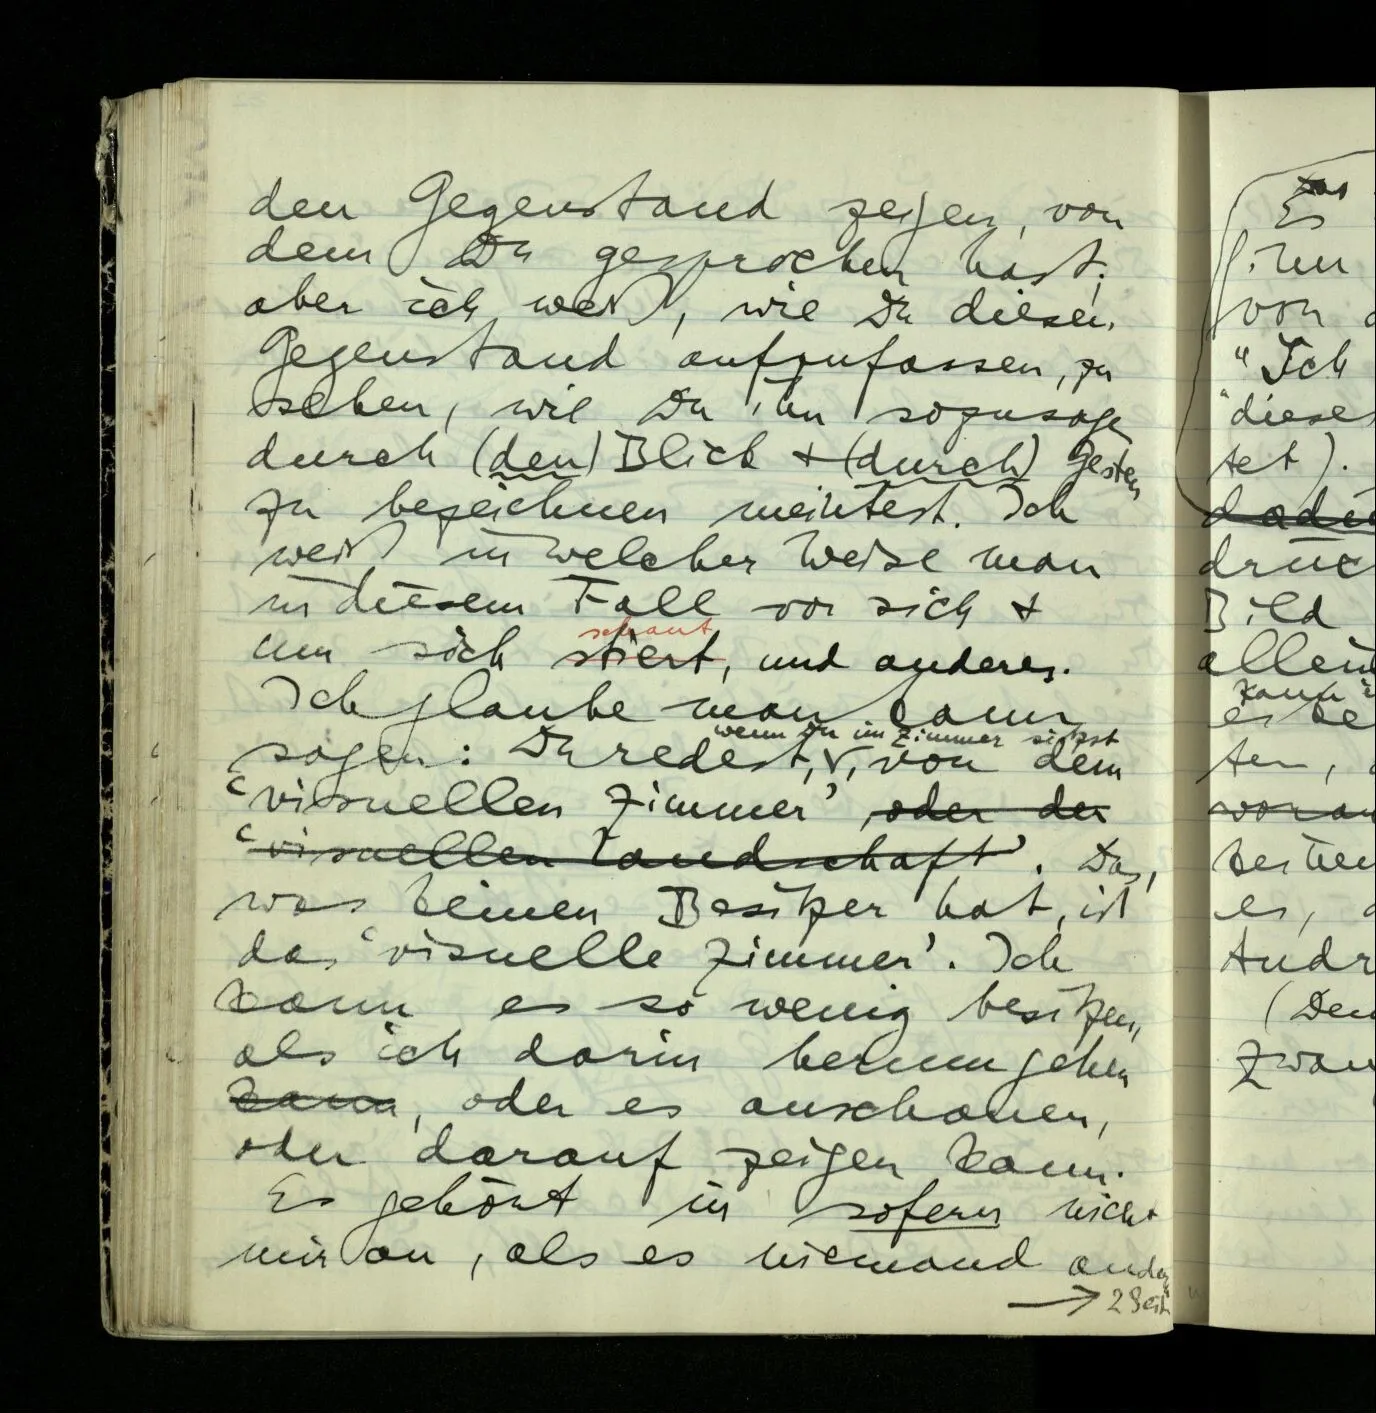 den Gegenstand zeigen, von
dem Du gesprochen hast;
aber ich weiß, wie Du diesen
Gegenstand aufzufassen, zu
sehen, wie Du ihn sozusagen
durch (den) Blick + (durch) Gesten
zu bezeichnen meintest. Ich
weiß in welcher Weise man
in diesem Fall vor sich +
schaut
um sich stiert, und anderes.
Ich glaube man kann
wenn Du im Zimmer sitzst
sagen: Du redest, v, von dem
‘visuellen Zimmer’, oder der
‘visuellen Landschaft’. Das,
was keinen Besitzer hat, ist
das ‘visuelle Zimmer’. Ich
kann es so wenig besitzen,
als ich darin herumgehen
kann, oder es anschauen,
oder darauf zeigen kann.
Es gehört in sofern nicht
mir an, als es niemand
→ 2 Seiten
Das
Es
von
"Ich
tet).
Bild
kann
es,
Zwan